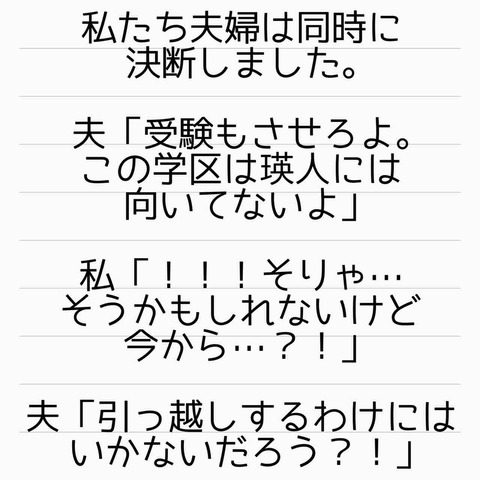 私たち夫婦は同時に
決断しました。
夫「受験もさせろよ。
この学区は瑛人には
向いてないよ」
私「！！！そりゃ…
そうかもしれないけど
今から…？！」
夫「引っ越しするわけには
いかないだろう？！」